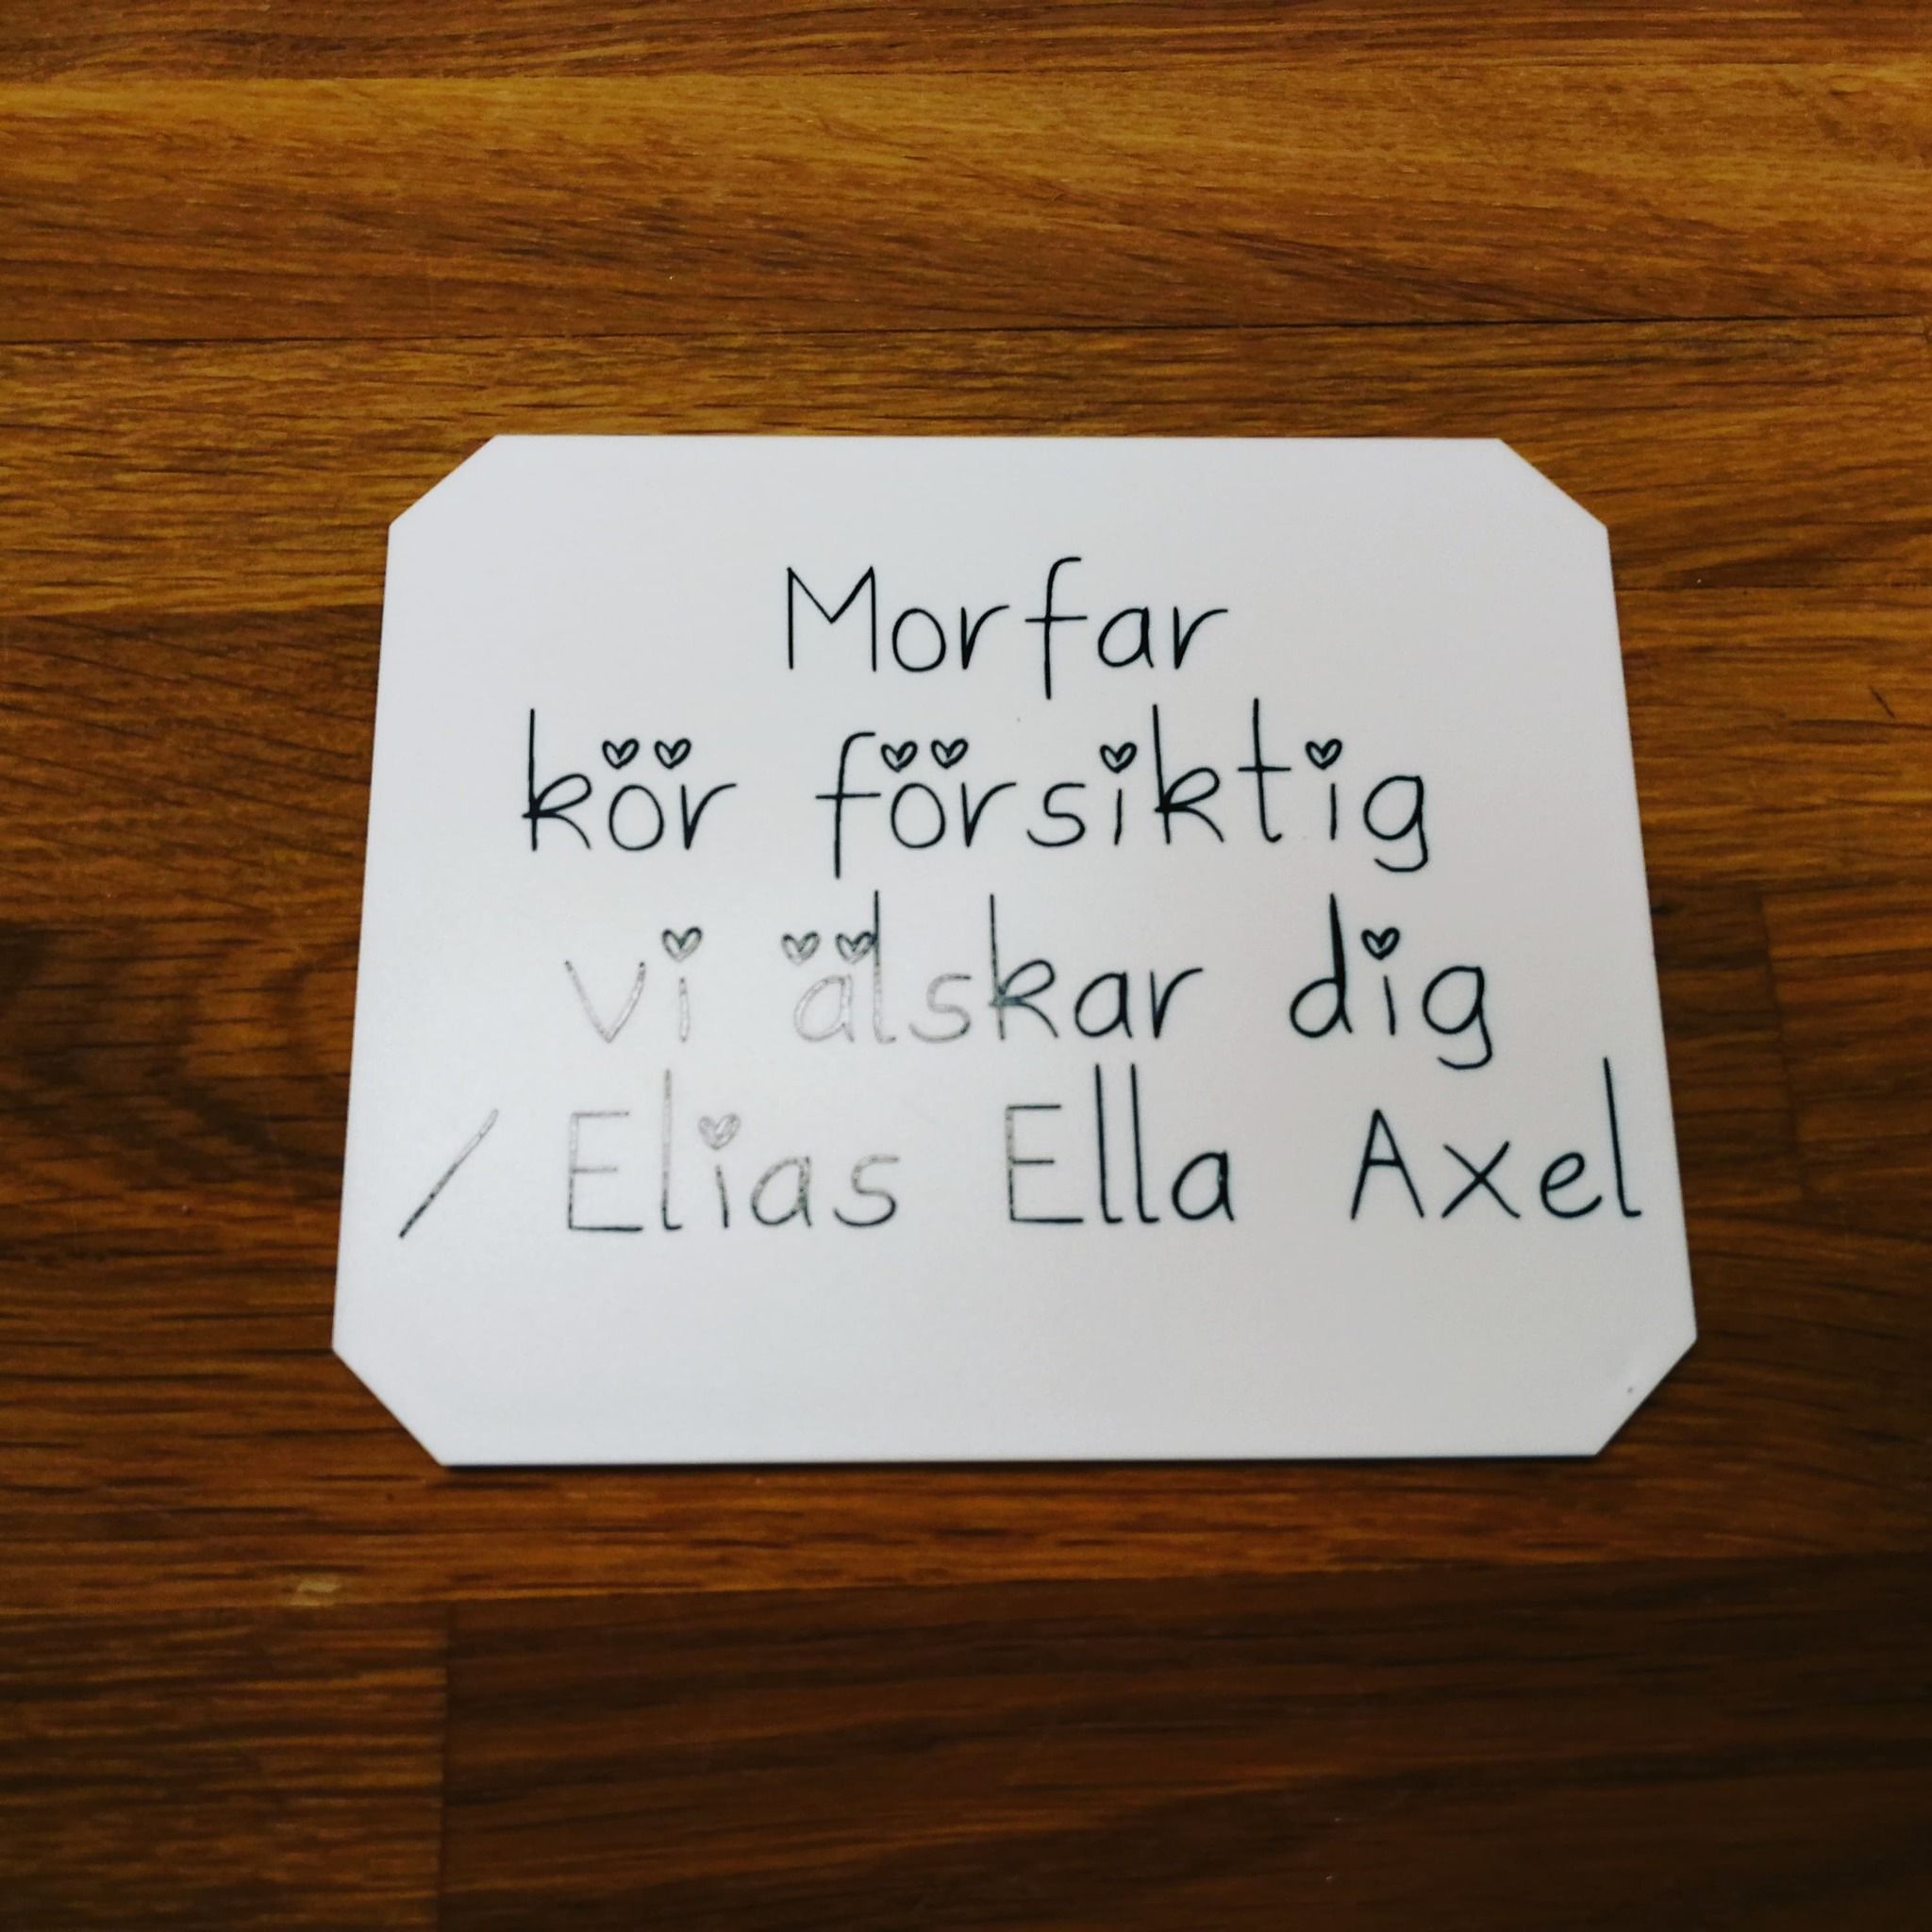 Morfar
kör försiktig
vi älskar dig
/ Elias Ella Axel